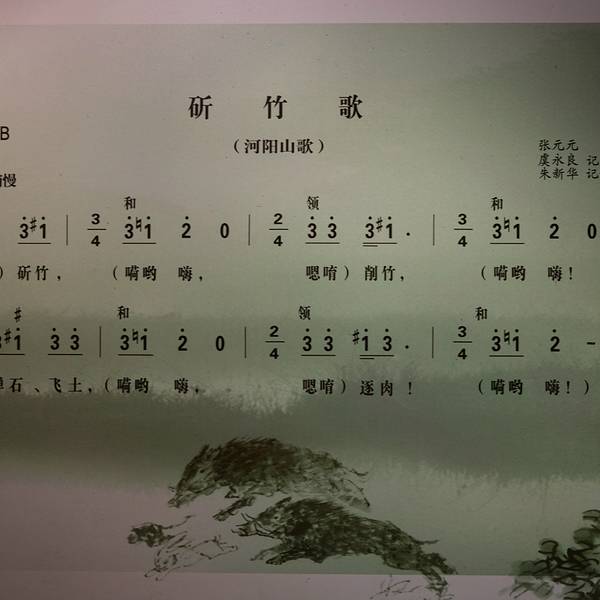 斫 竹 歌
(河阳山歌)
B
张元元
虞永良 记
朱新华 记
慢
和 领 和
3 #1 | 3/4 3 ♮1 2 0 | 2/4 3 3 3 #1 . | 3/4 3 ♮1 2 0
) 斫竹, (嗬哟 嗨, 嗯唷) 削竹, (嗬哟 嗨!
# 和 领 和
#1 3 3 | 3 ♮1 2 0 | 2/4 3 3 #1 3 . | 3/4 3 ♮1 2 -
石、飞土,(嗬哟 嗨, 嗯唷) 逐肉! (嗬哟 嗨!)